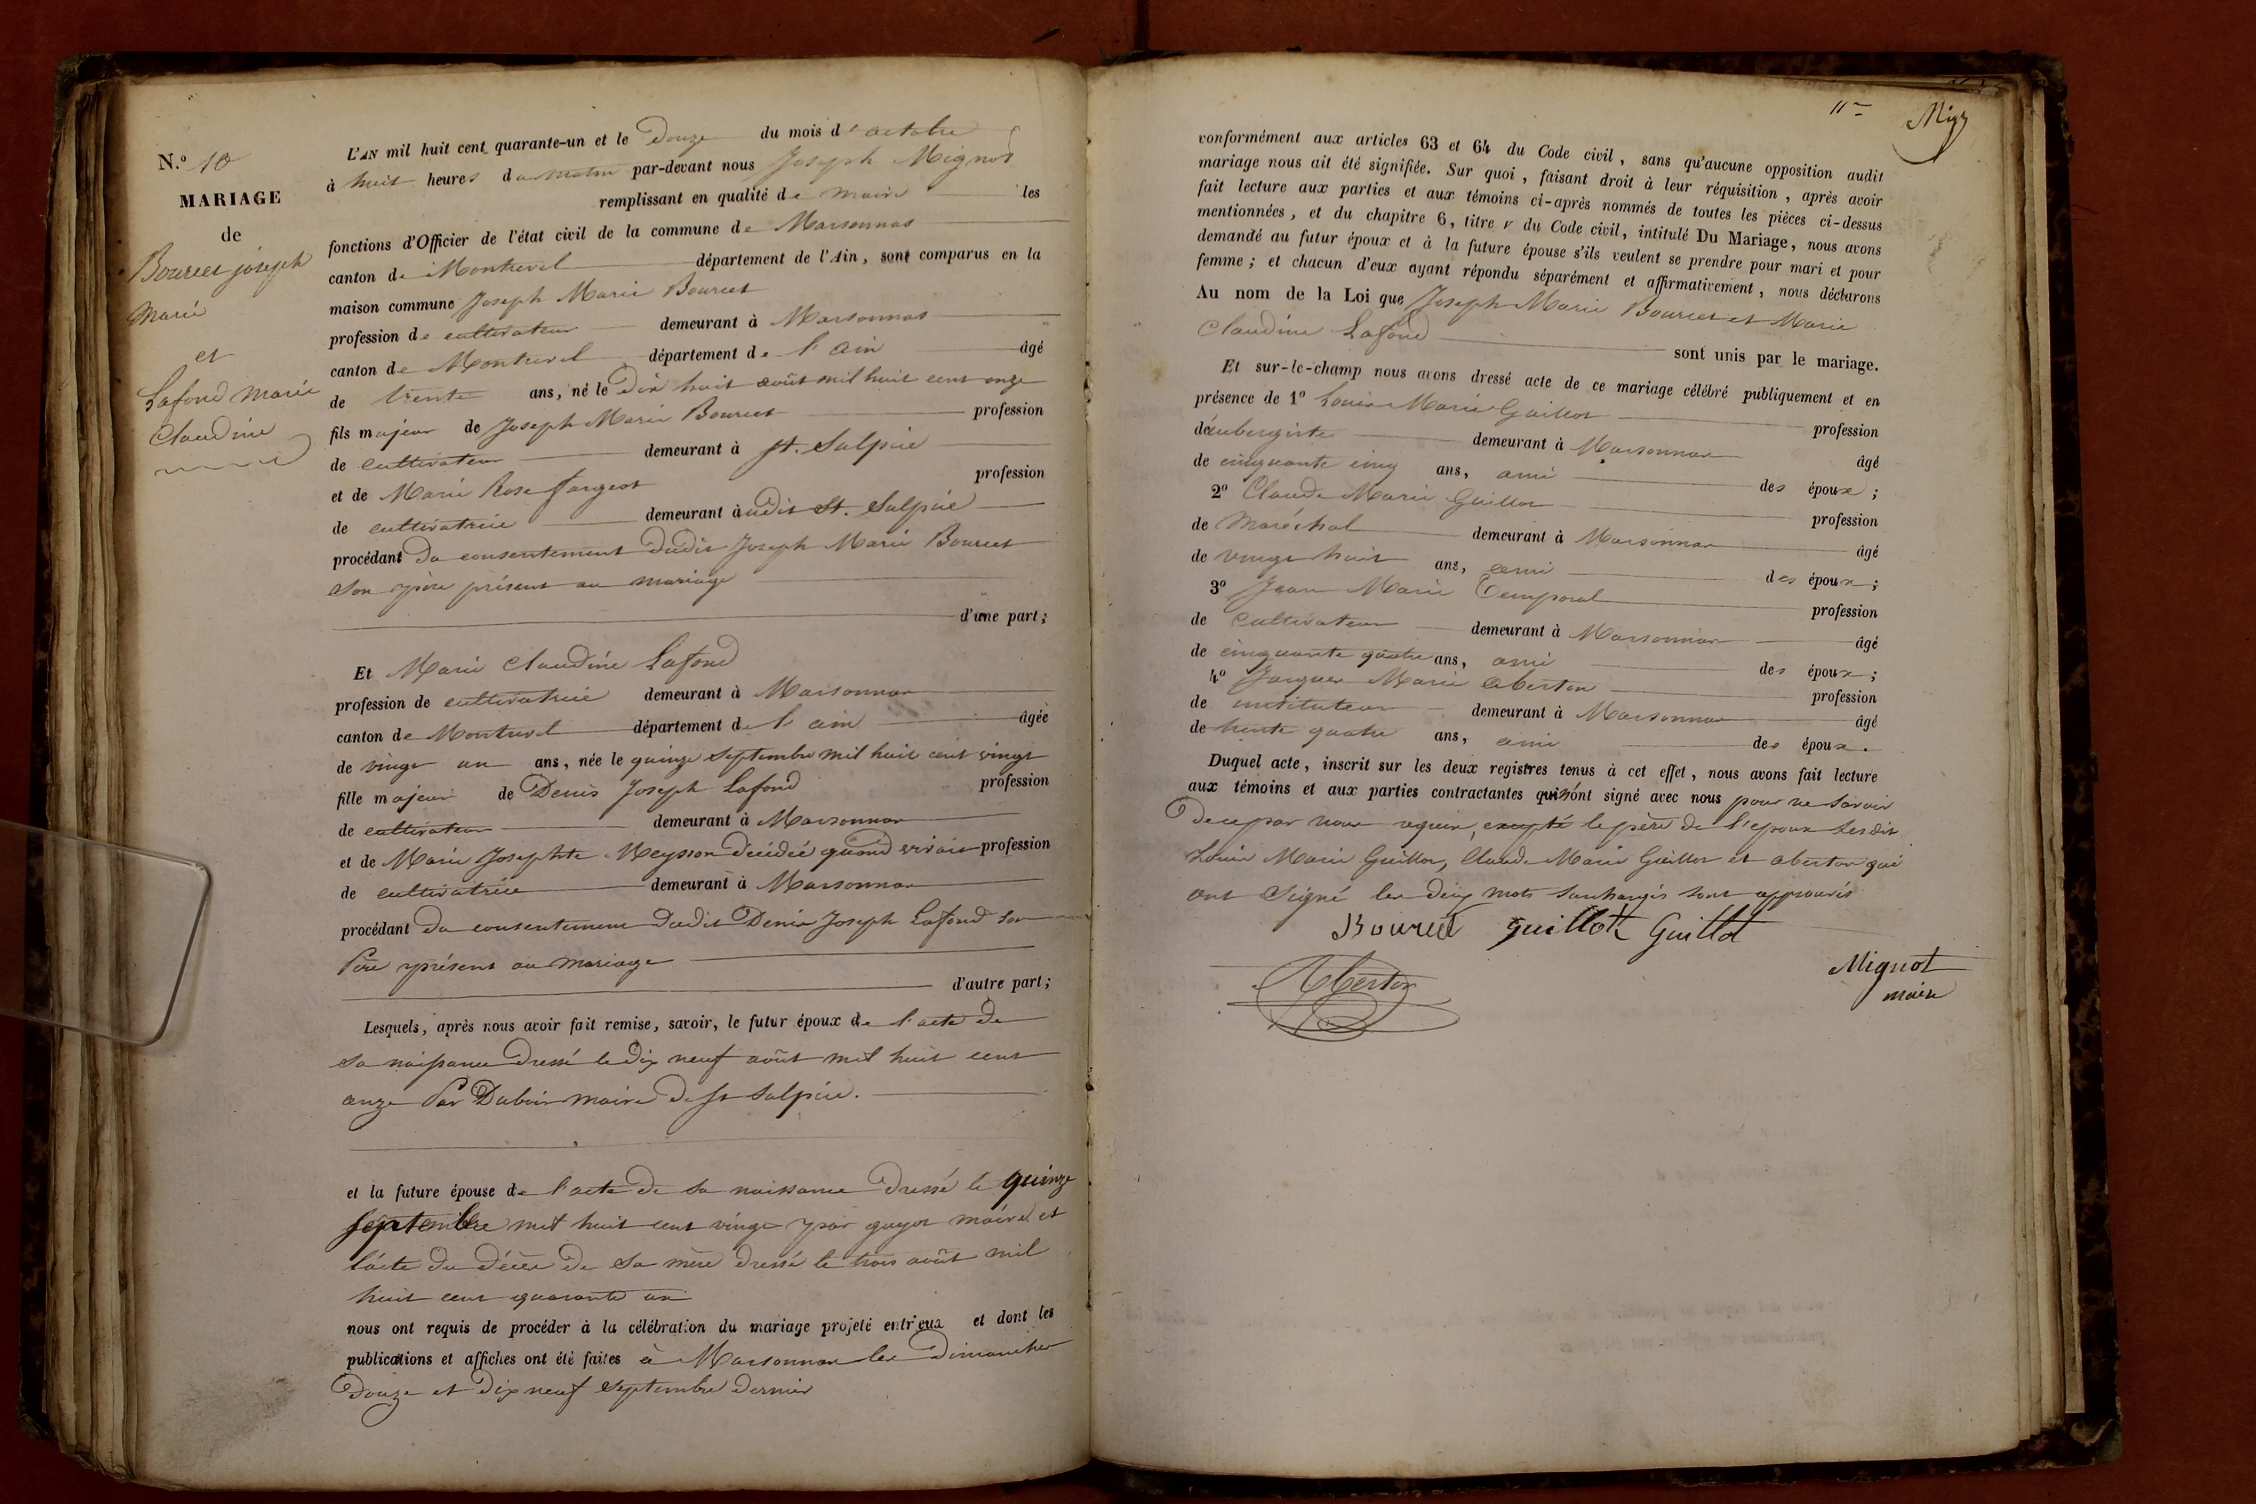 N.º 10
MARIAGE
de
Bourcet joseph
Marie
et
Lafond marie
Claudine
L'AN mil huit cent quarante-un et le Douze du mois d'octobre
à huit heures du matin par-devant nous Joseph Mignot
remplissant en qualité de maire les
fonctions d'Officier de l'état civil de la commune de Marsonnas
canton de Montrevel département de l'Ain, sont comparus en la
maison commune Joseph Marie Bourcet
profession de cultivateur demeurant à Marsonnas
canton de Montrevel département de l'ain âgé
de trente ans, né le Dix huit août mil huit cent onze
fils majeur de Joseph Marie Bourcet profession
de cultivateur demeurant à st. Sulpice
et de Marie Rose fargeot profession
de cultivatrice demeurant àudit St. Sulpice
procédant du consentement dudit Joseph Marie Bourcet
son père présent au mariage
d'une part;
Et Marie Claudine Lafond
profession de cultivatrice demeurant à Marsonnas
canton de Montrevel département de l'ain âgée
de vingt un ans, née le quinze septembre mil huit cent vingt
fille majeur de Denis Joseph Lafond profession
de cultivateur demeurant à Marsonnas
et de Marie Josephte Meysson décédée quand vivait profession
de cultivatrice demeurant à Marsonnas
procédant du consentement dudit Denis Joseph Lafond son
Père présent au mariage
d'autre part;
Lesquels, après nous avoir fait remise, savoir, le futur époux de l'acte de
sa naissance dressé le dix neuf août mil huit cent
onze Par Dubois maire de st Sulpice.
et la future épouse de l'acte de sa naissance dressé le quinze
septembre mil huit cent vingt par guyot maire et
l'acte du décès de sa mère dressé le trois août mil
huit cent quarante un
nous ont requis de procéder à la célébration du mariage projeté entr'eux et dont les
publications et affiches ont été faites à Marsonnas les Dimanches
Douze et Dix neuf septembre dernier
11
conformément aux articles 63 et 64 du Code civil, sans qu'aucune opposition audit
mariage nous ait été signifiée. Sur quoi, faisant droit à leur réquisition, après avoir
fait lecture aux parties et aux témoins ci-après nommés de toutes les pièces ci-dessus
mentionnées, et du chapitre 6, titre v du Code civil, intitulé Du Mariage, nous avons
demandé au futur époux et à la future épouse s'ils veulent se prendre pour mari et pour
femme; et chacun d'eux ayant répondu séparément et affirmativement, nous déclarons
Au nom de la Loi que Joseph Marie Bourcet et Marie
Claudine Lafond sont unis par le mariage.
Et sur-le-champ nous avons dressé acte de ce mariage célébré publiquement et en
présence de 1º Louis Marie Guillot profession
d'aubergiste demeurant à Marsonnas âgé
de cinquante cinq ans, ami des époux;
2º Claude Marie Guillot profession
de Maréchal demeurant à Marsonnas âgé
de vingt huit ans, ami des époux;
3º Jean Marie Temporal profession
de Cultivateur demeurant à Marsonnas âgé
de cinquante quatre ans, ami des époux;
4º Jacques Marie Aberton profession
de instituteur demeurant à Marsonnas âgé
de trente quatre ans, ami des époux.
Duquel acte, inscrit sur les deux registres tenus à cet effet, nous avons fait lecture
aux témoins et aux parties contractantes qui n'ont signé avec nous pour ne savoir
De ce par nous requis, excepté le père de l'époux lesdits
Louis Marie Guillot, Claude Marie Guillot et Aberton qui
ont Signé les deux mots surchargés sont approuvés
Bourcet guillot Guillot
Aberton
Mignot
maire